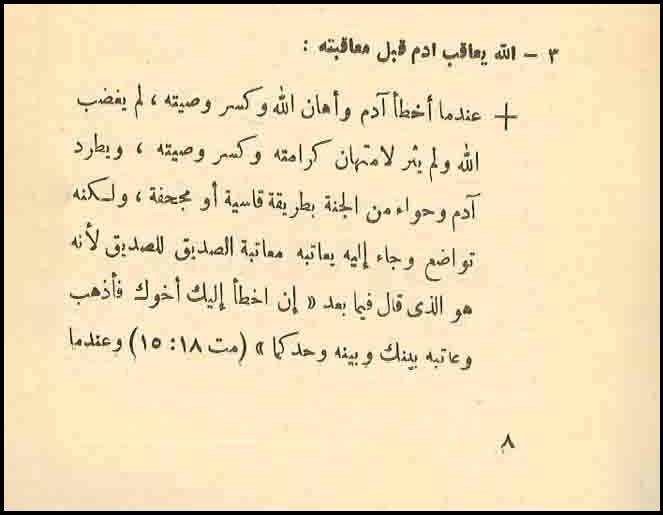 ٣ - الله يعاقب ادم قبل معاقبته :
+ عندما أخطأ آدم وأهان الله وكسر وصيته ، لم يغضب
الله ولم يثر لامتهان كرامته وكسر وصيته ، ويطرد
آدم وحواء من الجنة بطريقة قاسية أو مجحفة ، ولكنه
تواضع وجاء إليه يعاتبه معاتبة الصديق للصديق لأنه
هو الذى قال فيما بعد « إن اخطأ إليك أخوك فأذهب
وعاتبه بينك وبينه وحدكما » (مت ١٨ : ١٥) وعندما
٨